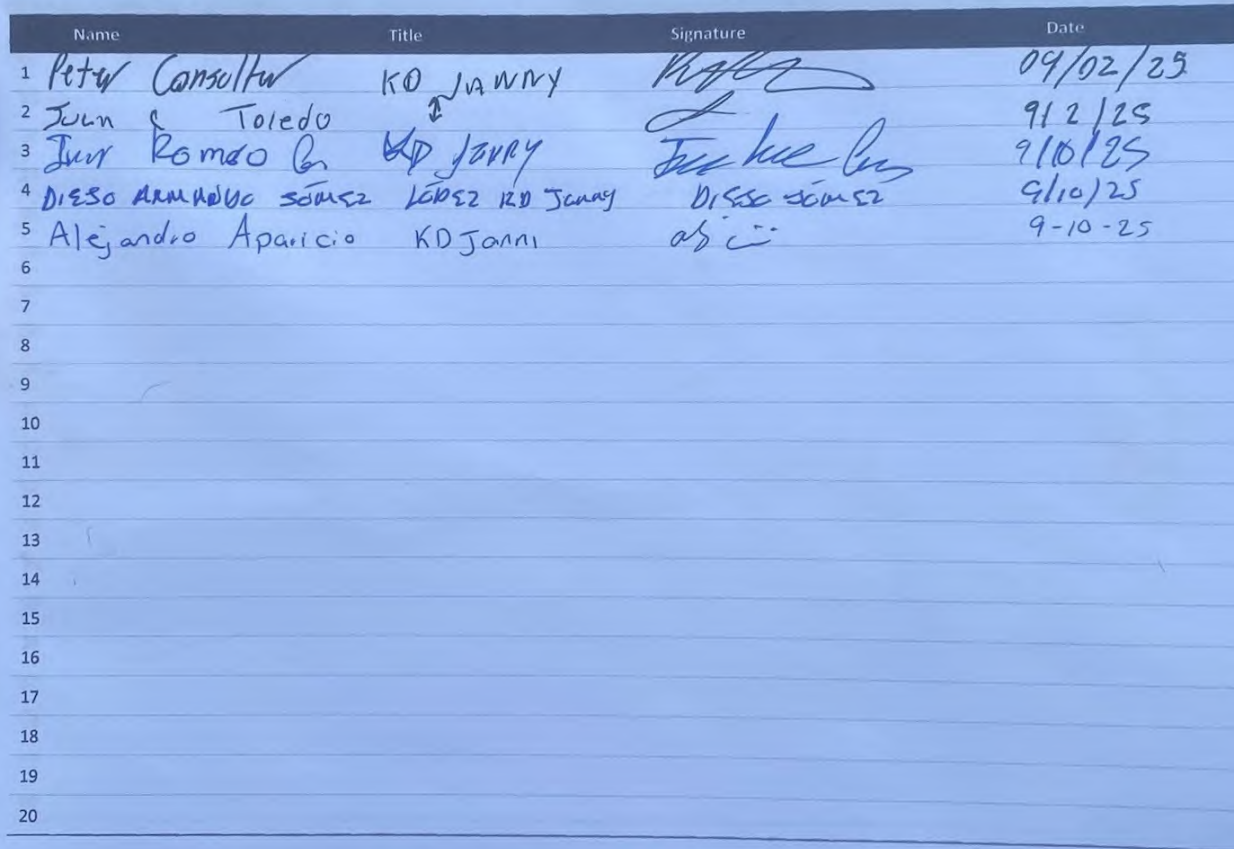 Name Title Signature Date
1 Peter KD JANNY 09/02/25
2 Juan C Toledo 9/2/25
3 Romeo KD JANRY 9/10/25
4 DIEGO ARMANDO GÓMEZ LÓPEZ KD Janny DIEGO GÓMEZ 9/10/25
5 Alejandro Aparicio KD Janni 9-10-25
6
7
8
9
10
11
12
13
14
15
16
17
18
19
20